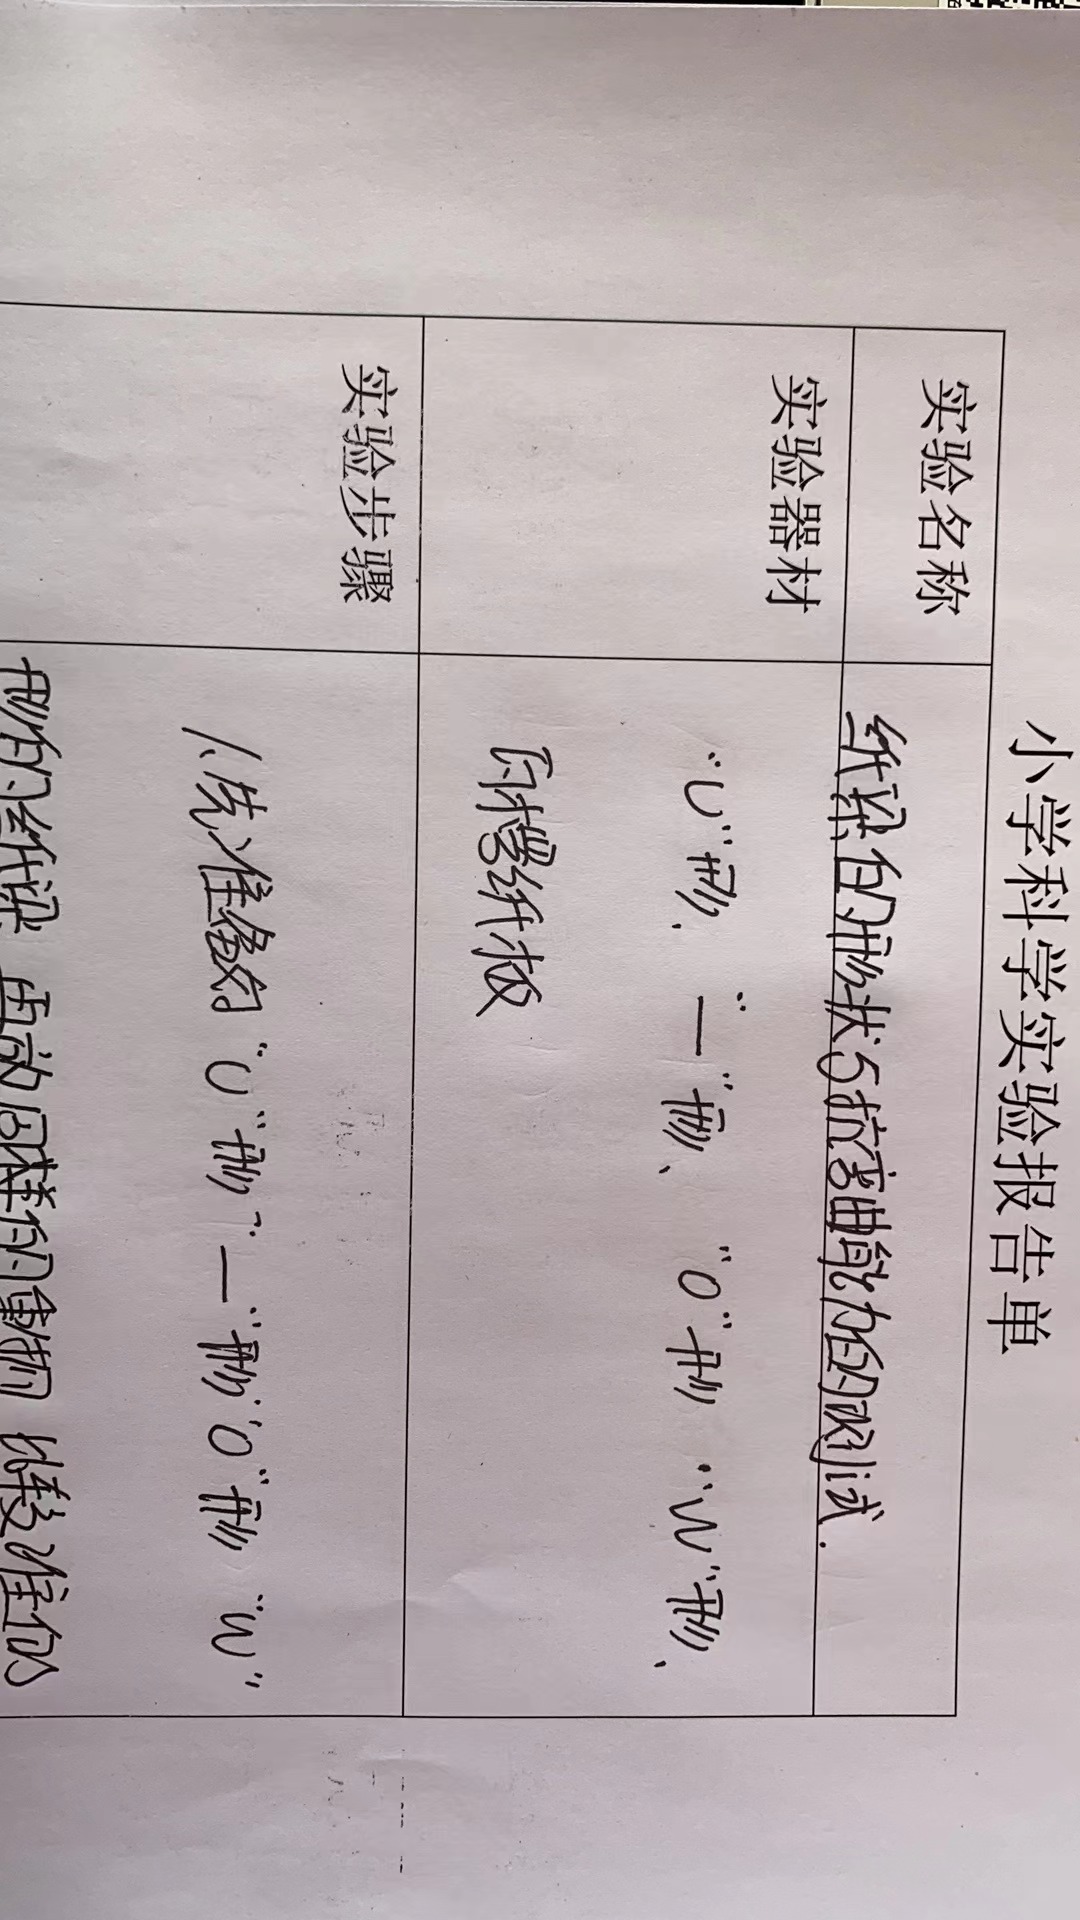 小学科学实验报告单
实验名称
纸梁的形状与抗弯曲能力的测试.
实验器材
"U"形、"一"形、"O"形、"W"形、
的纸板
实验步骤
1.先准备好"U"形"一"形"O"形"W"
形的纸梁 再放同样的重物 谁的